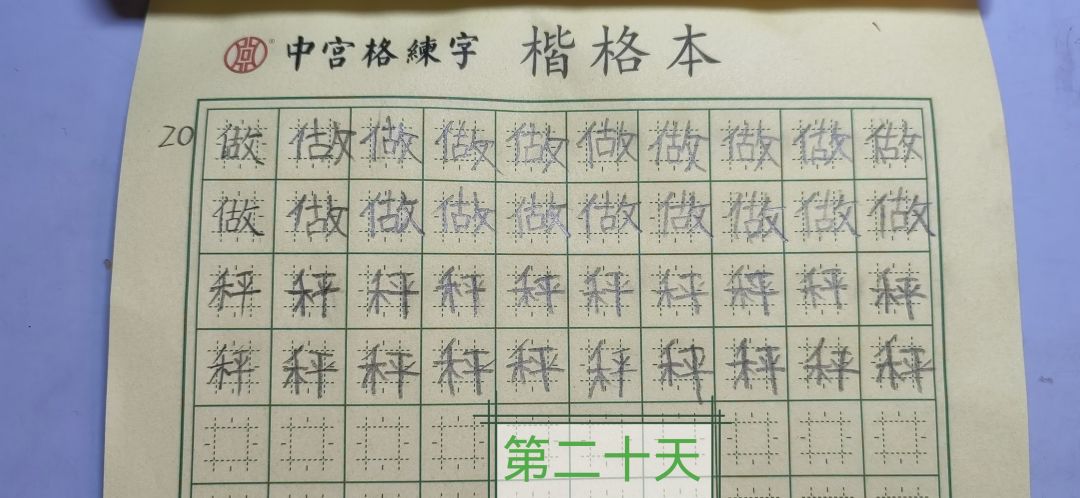 中宫格練字 楷格本
20 做做做做做做做做做做
做做做做做做做做做做
秤秤秤秤秤秤秤秤秤秤
秤秤秤秤秤秤秤秤秤秤
第二十天